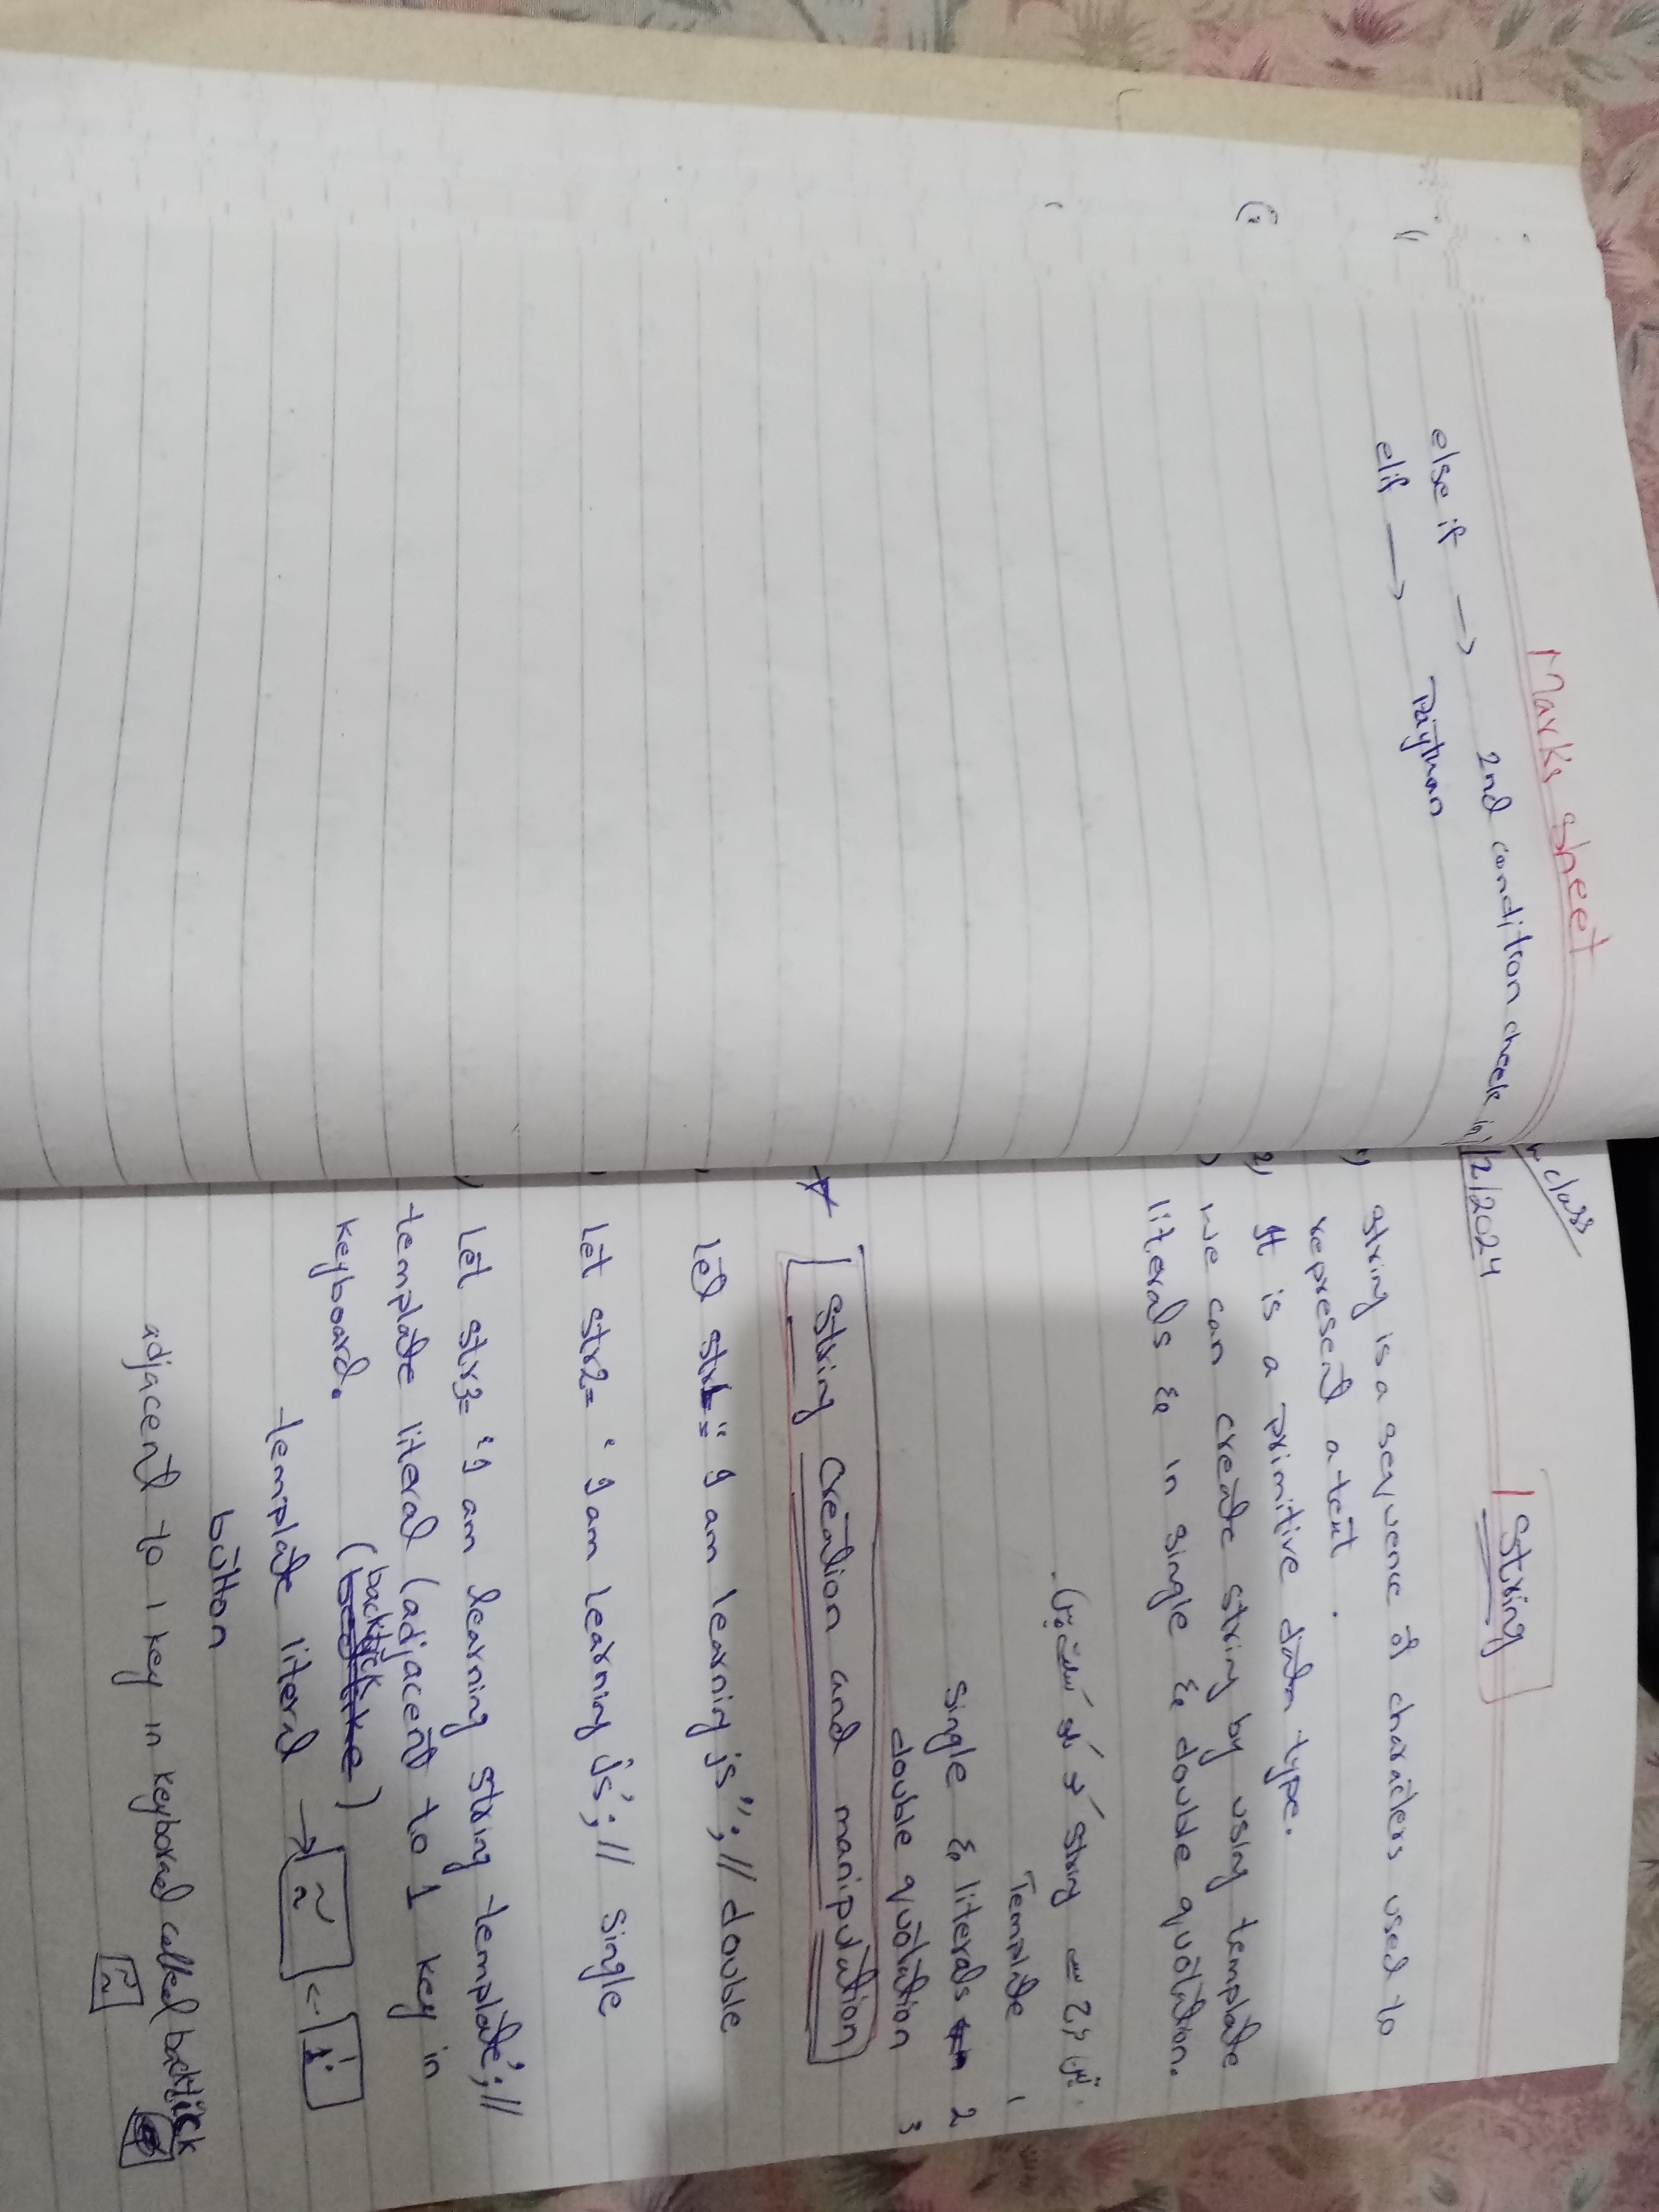 Marks sheet
else if → 2nd condition check in
elif → Paiythan
class
12/2024
String
string is a sequence of characters used to
represent a text.
2) It is a primitive data type.
) we can create string by using template
literals & in single & double quotation.
string
Template 1
Single & literals 2
double quotation 3
String Creation and manipulation
let str1=" I am learning js"; // double
let str2= ' I am learning js'; // single
let str3= 'I am learning string template'; //
template literal (adjacent to 1 key in
keyboard. (backtick)
template literal → ~ ← 1
button
adjacent to 1 key in keyborad called backtick